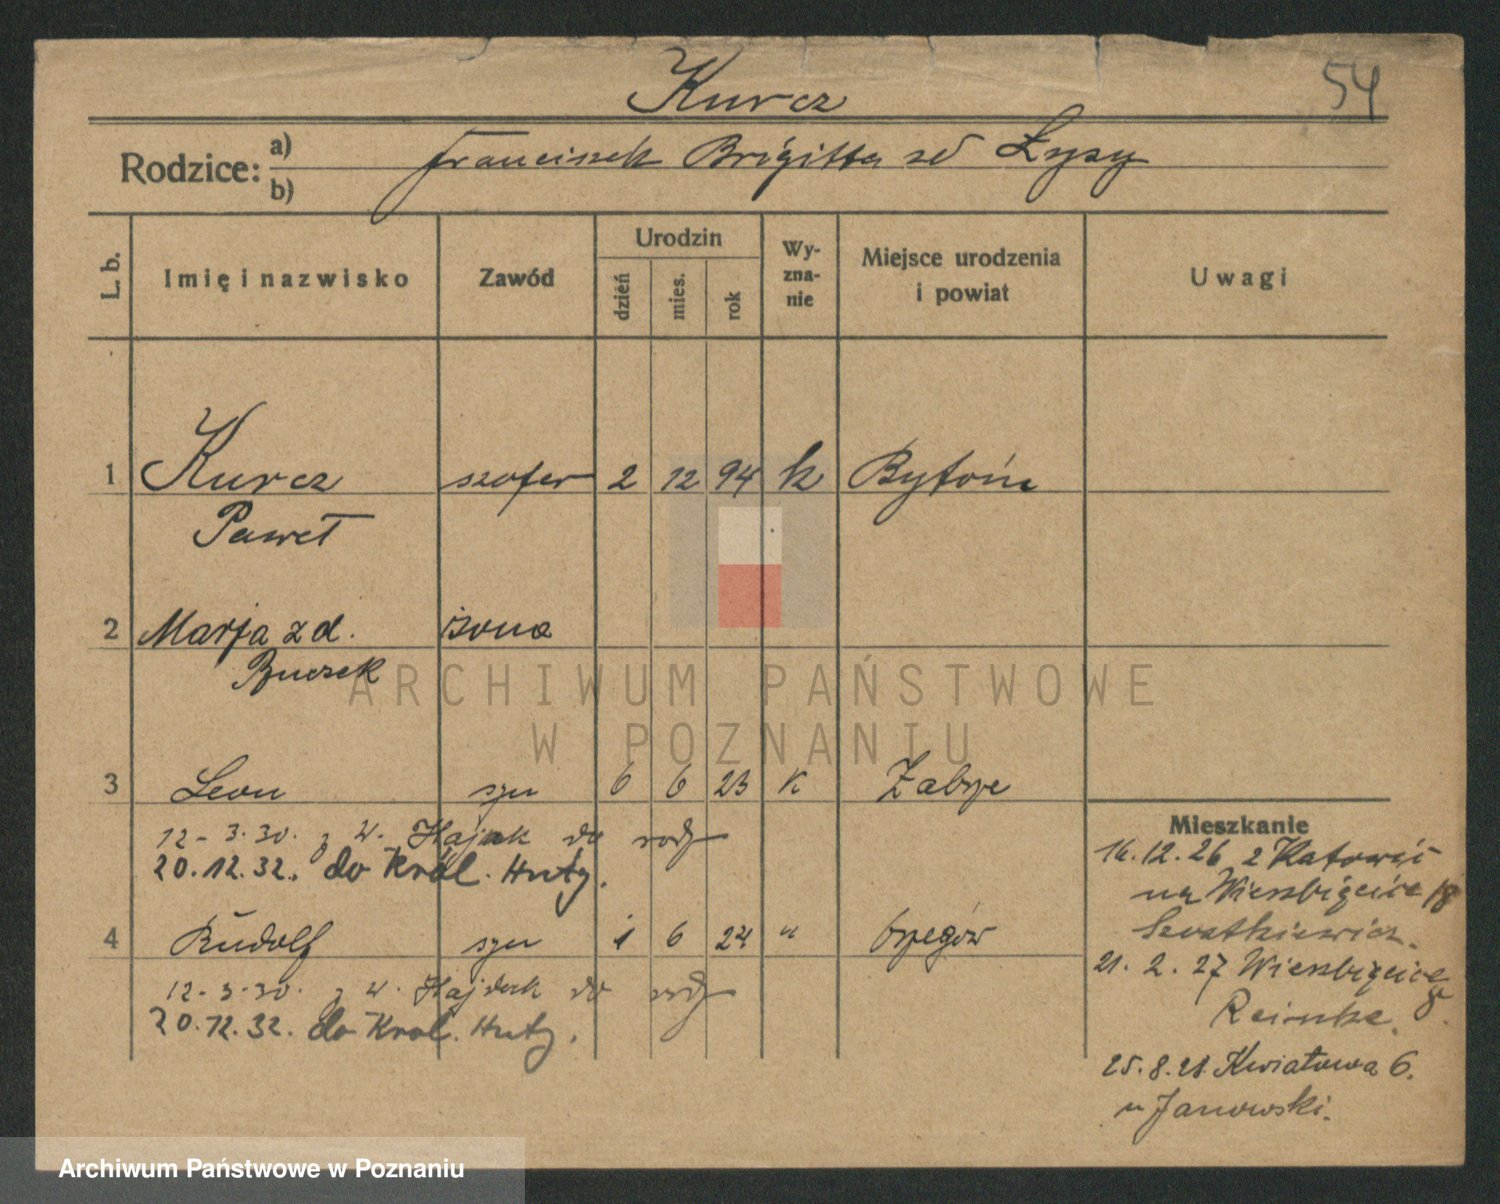 Kurcz
54
Rodzice: a) Franciszek Brigitta zd Łysy
b)
L. b.
Imię i nazwisko
Zawód
Urodzin
dzień
mies.
rok
Wy-
zna-
nie
Miejsce urodzenia
i powiat
Uwagi
1 Kurcz szofer 2 12 94 k Bytom
Paweł
2 Marja z d. żona
Buczek
ARCHIWUM PAŃSTWOWE
W POZNANIU
3 Leon syn 6 6 23 k Zabrze
12-3.30. z W. Hajduk do rodz
20.12.32. do Król. Huty.
4 Rudolf syn 1 6 24 "
12-3-30. z W. Hajduk do rodz
20.12.32. do Krol. Huty.
Mieszkanie
16.12.26 z Katowic
na Wierzbięcice 18
21. 2. 27 Wierzbięcice
8.
Reinke.
25.8.28. Kwiatowa 6.
u Janowski.
Archiwum Państwowe w Poznaniu